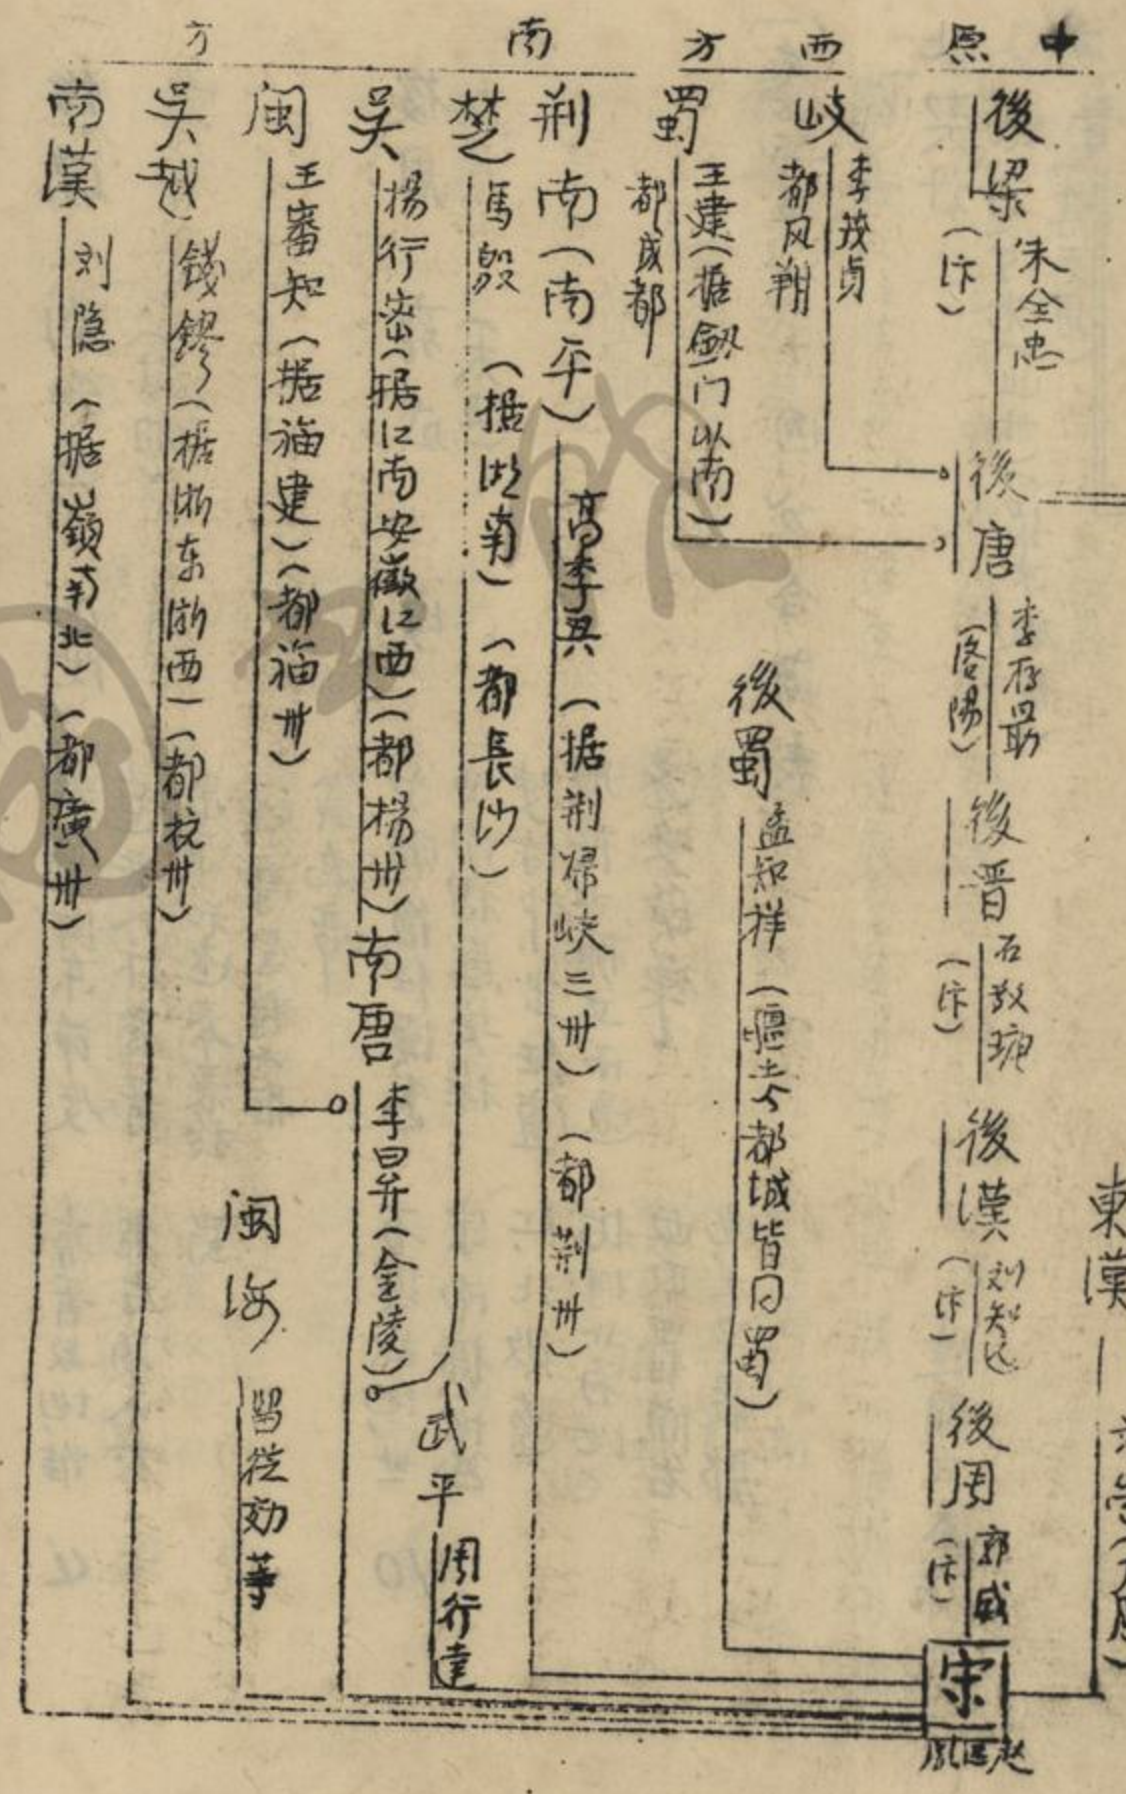 中原
後梁
朱全忠
(汴)
後唐
李存勗
(洛陽)
後晋
石敬瑭
(汴)
後漢
刘知远
(汴)
後周
郭威
(汴)
宋
赵匡胤
東漢
西方
岐
李茂贞
都凤翔
蜀
王建(据劔门以南)
都成都
後蜀
孟知祥(疆土与都城皆同蜀)
南方
荆南(南平)
高季興(据荆归峡三州)(都荆州)
楚
馬殷(据湖南)(都長沙)
武平
周行逢
吴
楊行密(据江南安徽江西)(都楊州)
南唐
李昪(金陵)
闽
王審知(据福建)(都福州)
闽海
留從効等
吴越
錢鏐(据浙东浙西)(都杭州)
南漢
刘隐(据嶺南北)(都廣州)